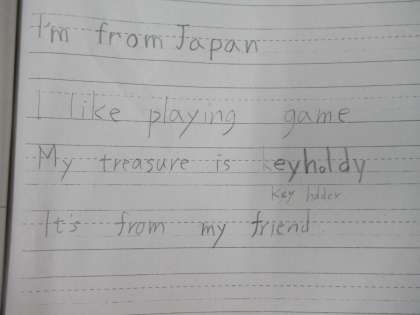 I'm from Japan
I like playing game
My treasure is keyholdy
key holder
It's from my friend